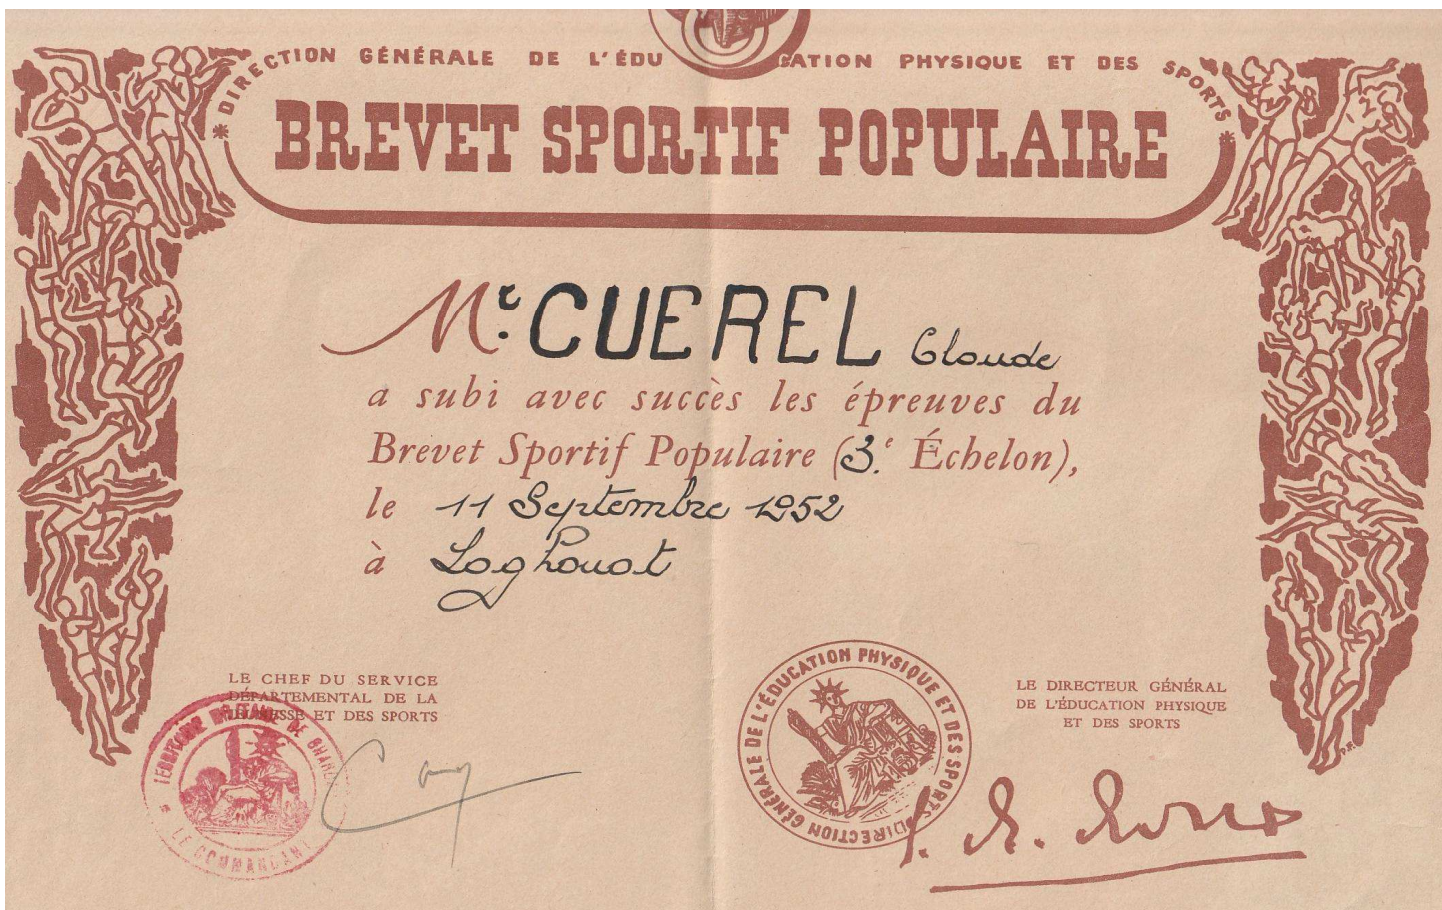 * DIRECTION GÉNÉRALE DE L'ÉDUCATION PHYSIQUE ET DES SPORTS *
BREVET SPORTIF POPULAIRE
Mr CUEREL Claude
a subi avec succès les épreuves du
Brevet Sportif Populaire (3.e Échelon),
le 11 Septembre 1952
à Laghouat
LE CHEF DU SERVICE
DÉPARTEMENTAL DE LA
JEUNESSE ET DES SPORTS
TERRITOIRE MILITAIRE DE
* LE COMMANDANT
DIRECTION GÉNÉRALE DE L'ÉDUCATION PHYSIQUE ET DES SPORTS
LE DIRECTEUR GÉNÉRAL
DE L'ÉDUCATION PHYSIQUE
ET DES SPORTS